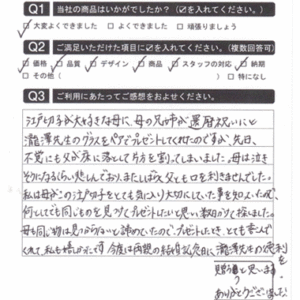 Q1 当社の商品はいかがでしたか？（☑を入れてください。）
☑大変よくできました ☐よくできました ☐頑張りましょう
Q2 ご満足いただけた項目に☑を入れてください。（複数回答可）
☑価格 ☑品質 ☑デザイン ☑商品 ☑スタッフの対応 ☑納期
☐その他（ ） ☐特になし
Q3 ご利用にあたってご感想をおよせください。
江戸切子が大好きな母に、母の兄姉が還暦祝いにと
瀧澤先生のグラスをペアでプレゼントしてくれたのですが、先日、
不覚にも父が床に落として片方を割ってしまいました。母は泣き
そうになるくらい悲しんでおり、またしばらく父とも口を利きませんでした。
私は母がこの江戸切子をとても気に入り大切にしていた事を知っていたので、
何としてでも同じものを見つけてプレゼントしたいと思い数日かけて探しました。
母も同じ物は見つからないと諦めていたので、プレゼントしたとき、とても喜んで
くれて、私も嬉しかったです 今度は両親の結婚記念日に、瀧澤先生の
贈ろうと思います
ありがとうございました